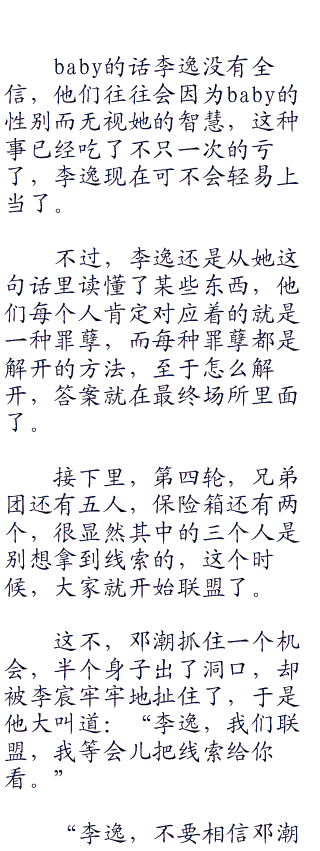 baby的话李逸没有全
信，他们往往会因为baby的
性别而无视她的智慧，这种
事已经吃了不只一次的亏
了，李逸现在可不会轻易上
当了。
不过，李逸还是从她这
句话里读懂了某些东西，他
们每个人肯定对应着的就是
一种罪孽，而每种罪孽都是
解开的方法，至于怎么解
开，答案就在最终场所里面
了。
接下里，第四轮，兄弟
团还有五人，保险箱还有两
个，很显然其中的三个人是
别想拿到线索的，这个时
候，大家就开始联盟了。
这不，邓潮抓住一个机
会，半个身子出了洞口，却
被李宸牢牢地扯住了，于是
他大叫道：“李逸，我们联
盟，我等会儿把线索给你
看。”
“李逸，不要相信邓潮